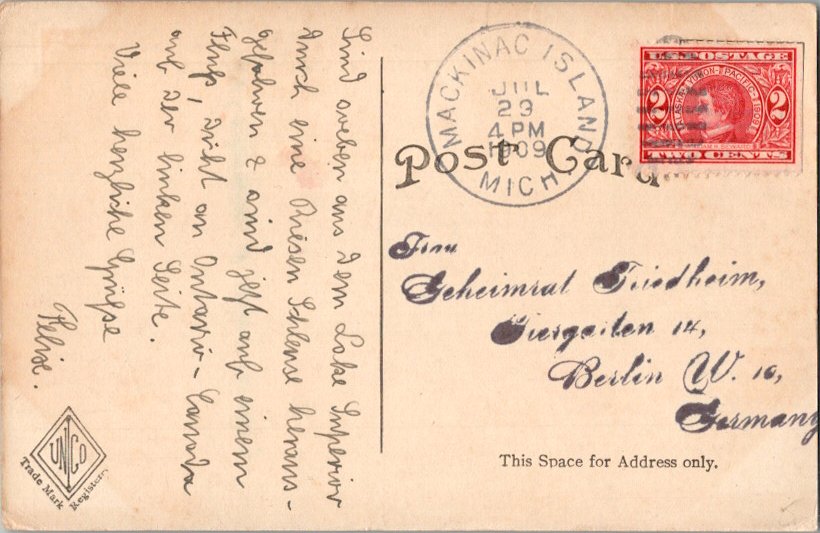 Sind soeben aus dem Lake Superior
durch eine Riesen Schleuse heraus-
gefahren & sind jetzt auf einem
Fluß, dicht an Ontario - Canada
auf der linken Seite.
Viele herzliche Grüße
MACKINAC ISLAND
JUL
23
4 PM
1909
MICH
U.S. POSTAGE
ALASKA-YUKON-PACIFIC 1909
2 2
TWO CENTS
Post Card
Frau
Geheimrat Friedheim,
Tiergarten 14,
Berlin W. 10,
Germany
This Space for Address only.
UNCO
Trade Mark
Registered